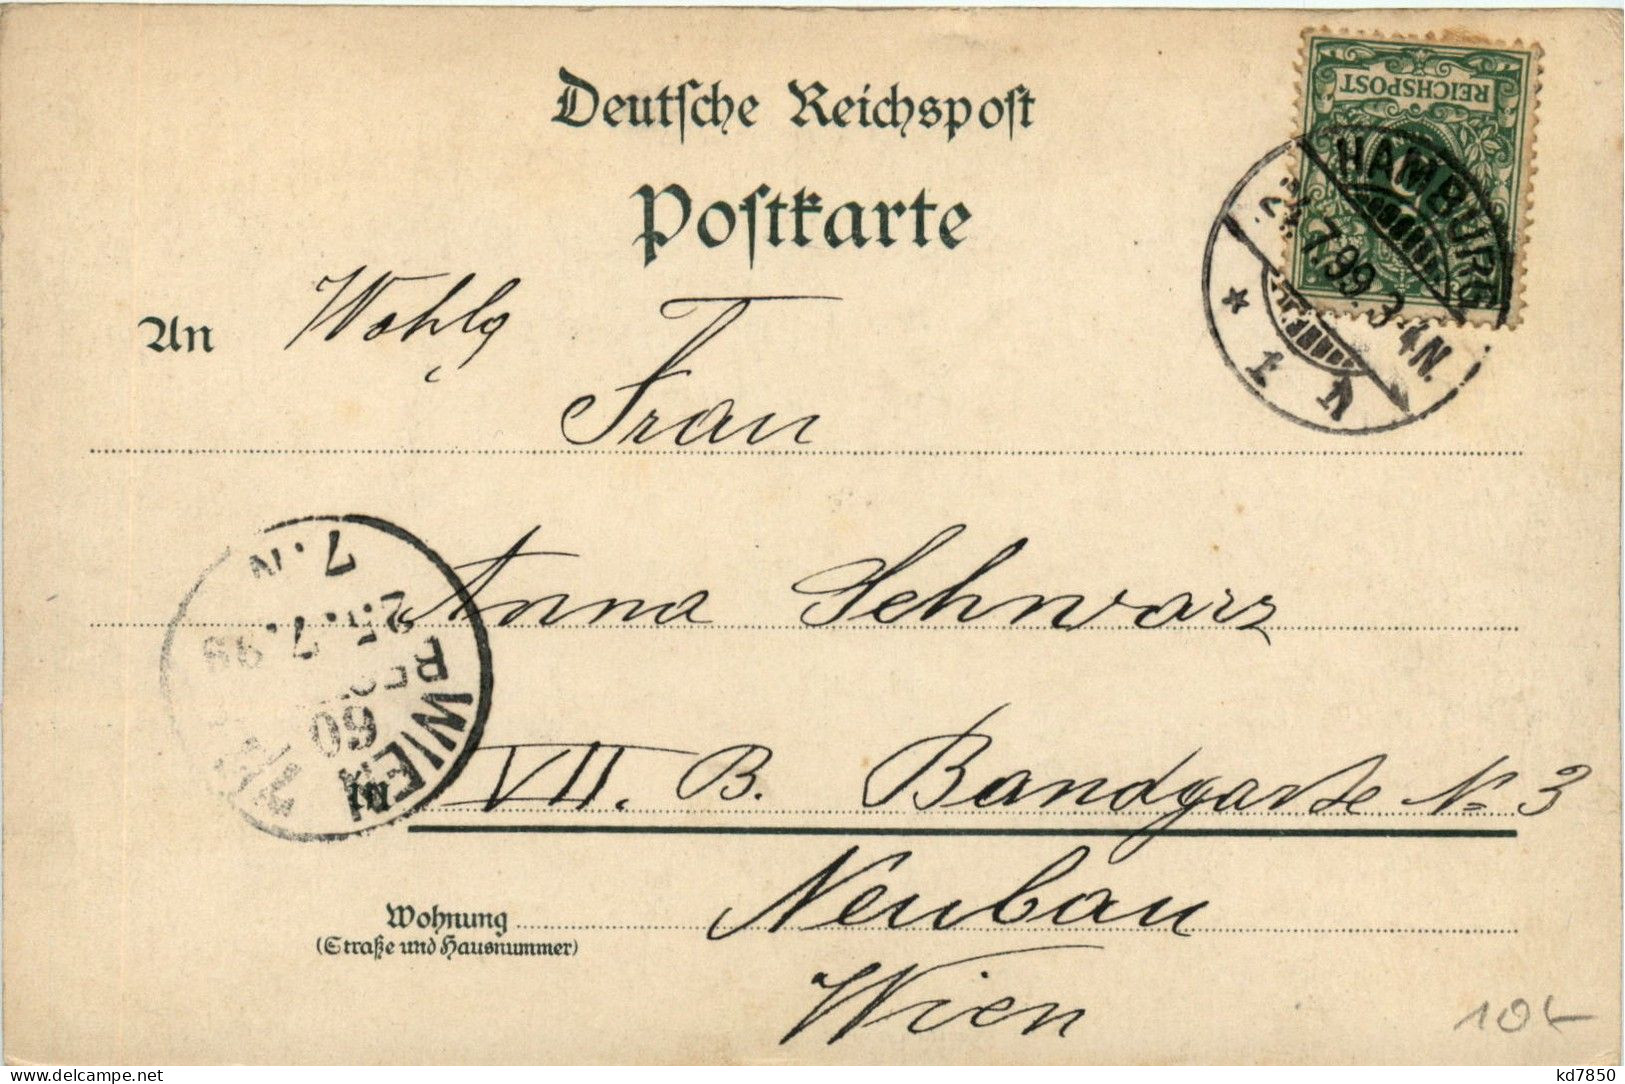 Deutſche Reichspoſt
REICHSPOST
Poſtkarte
HAMBURG
24.7.99. 3-4N.
* 1 V
An Wohlg
Frau
7.N
25.7.99
WIEN
60
Anna Schwarz
VII. B. Bandgasse No 3
Wohnung Neubau
(Straße und Hausnummer)
Wien
kd7850